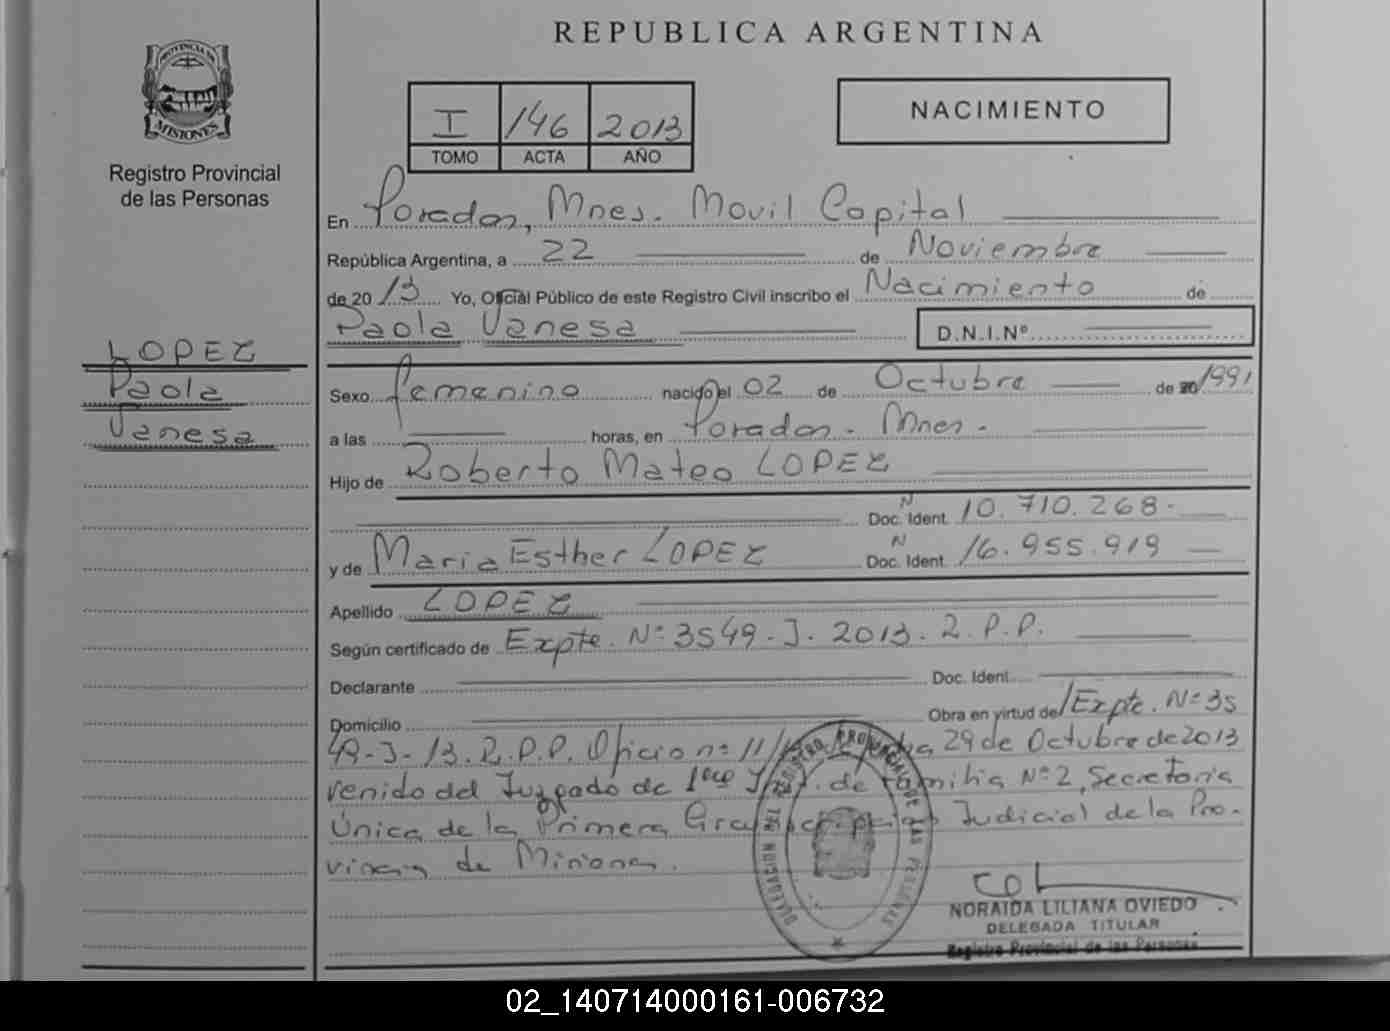 REPUBLICA ARGENTINA
PROVINCIA DE
MISIONES
Registro Provincial
de las Personas
I 146 2013
TOMO ACTA AÑO
NACIMIENTO
En Posadas, Mnes. Movil Capital
República Argentina, a 22 de Noviembre
de 2013 Yo, Oficial Público de este Registro Civil inscribo el Nacimiento de
Paola Vanesa D.N.I.Nº
LOPEZ
Paola
Vanesa
Sexo Femenino nacido el 02 de Octubre de 20 1991
a las horas, en Posadas. Mnes.
Hijo de Roberto Mateo LOPEZ
Doc. Ident. N 10.710.268.
y de Maria Esther LOPEZ Doc. Ident. N 16.955.919
Apellido LOPEZ
Según certificado de Expte. Nº 3549. J. 2013. R. P. P.
Declarante Doc. Ident.
Domicilio Obra en virtud de/Expte. Nº 35
49-J-13. R.P.P. Oficio nº 11/ 29 de Octubre de 2013
venido del Juzgado de 1era de Familia Nº 2, Secretaria
Única de la Primera Circunscripcion Judicial de la Pro-
vincia de Misiones.
DELEGACION DEL REGISTRO PROVINCIAL DE LAS PERSONAS
NORAIDA LILIANA OVIEDO
DELEGADA TITULAR
Registro Provincial de las Personas
02_140714000161-006732